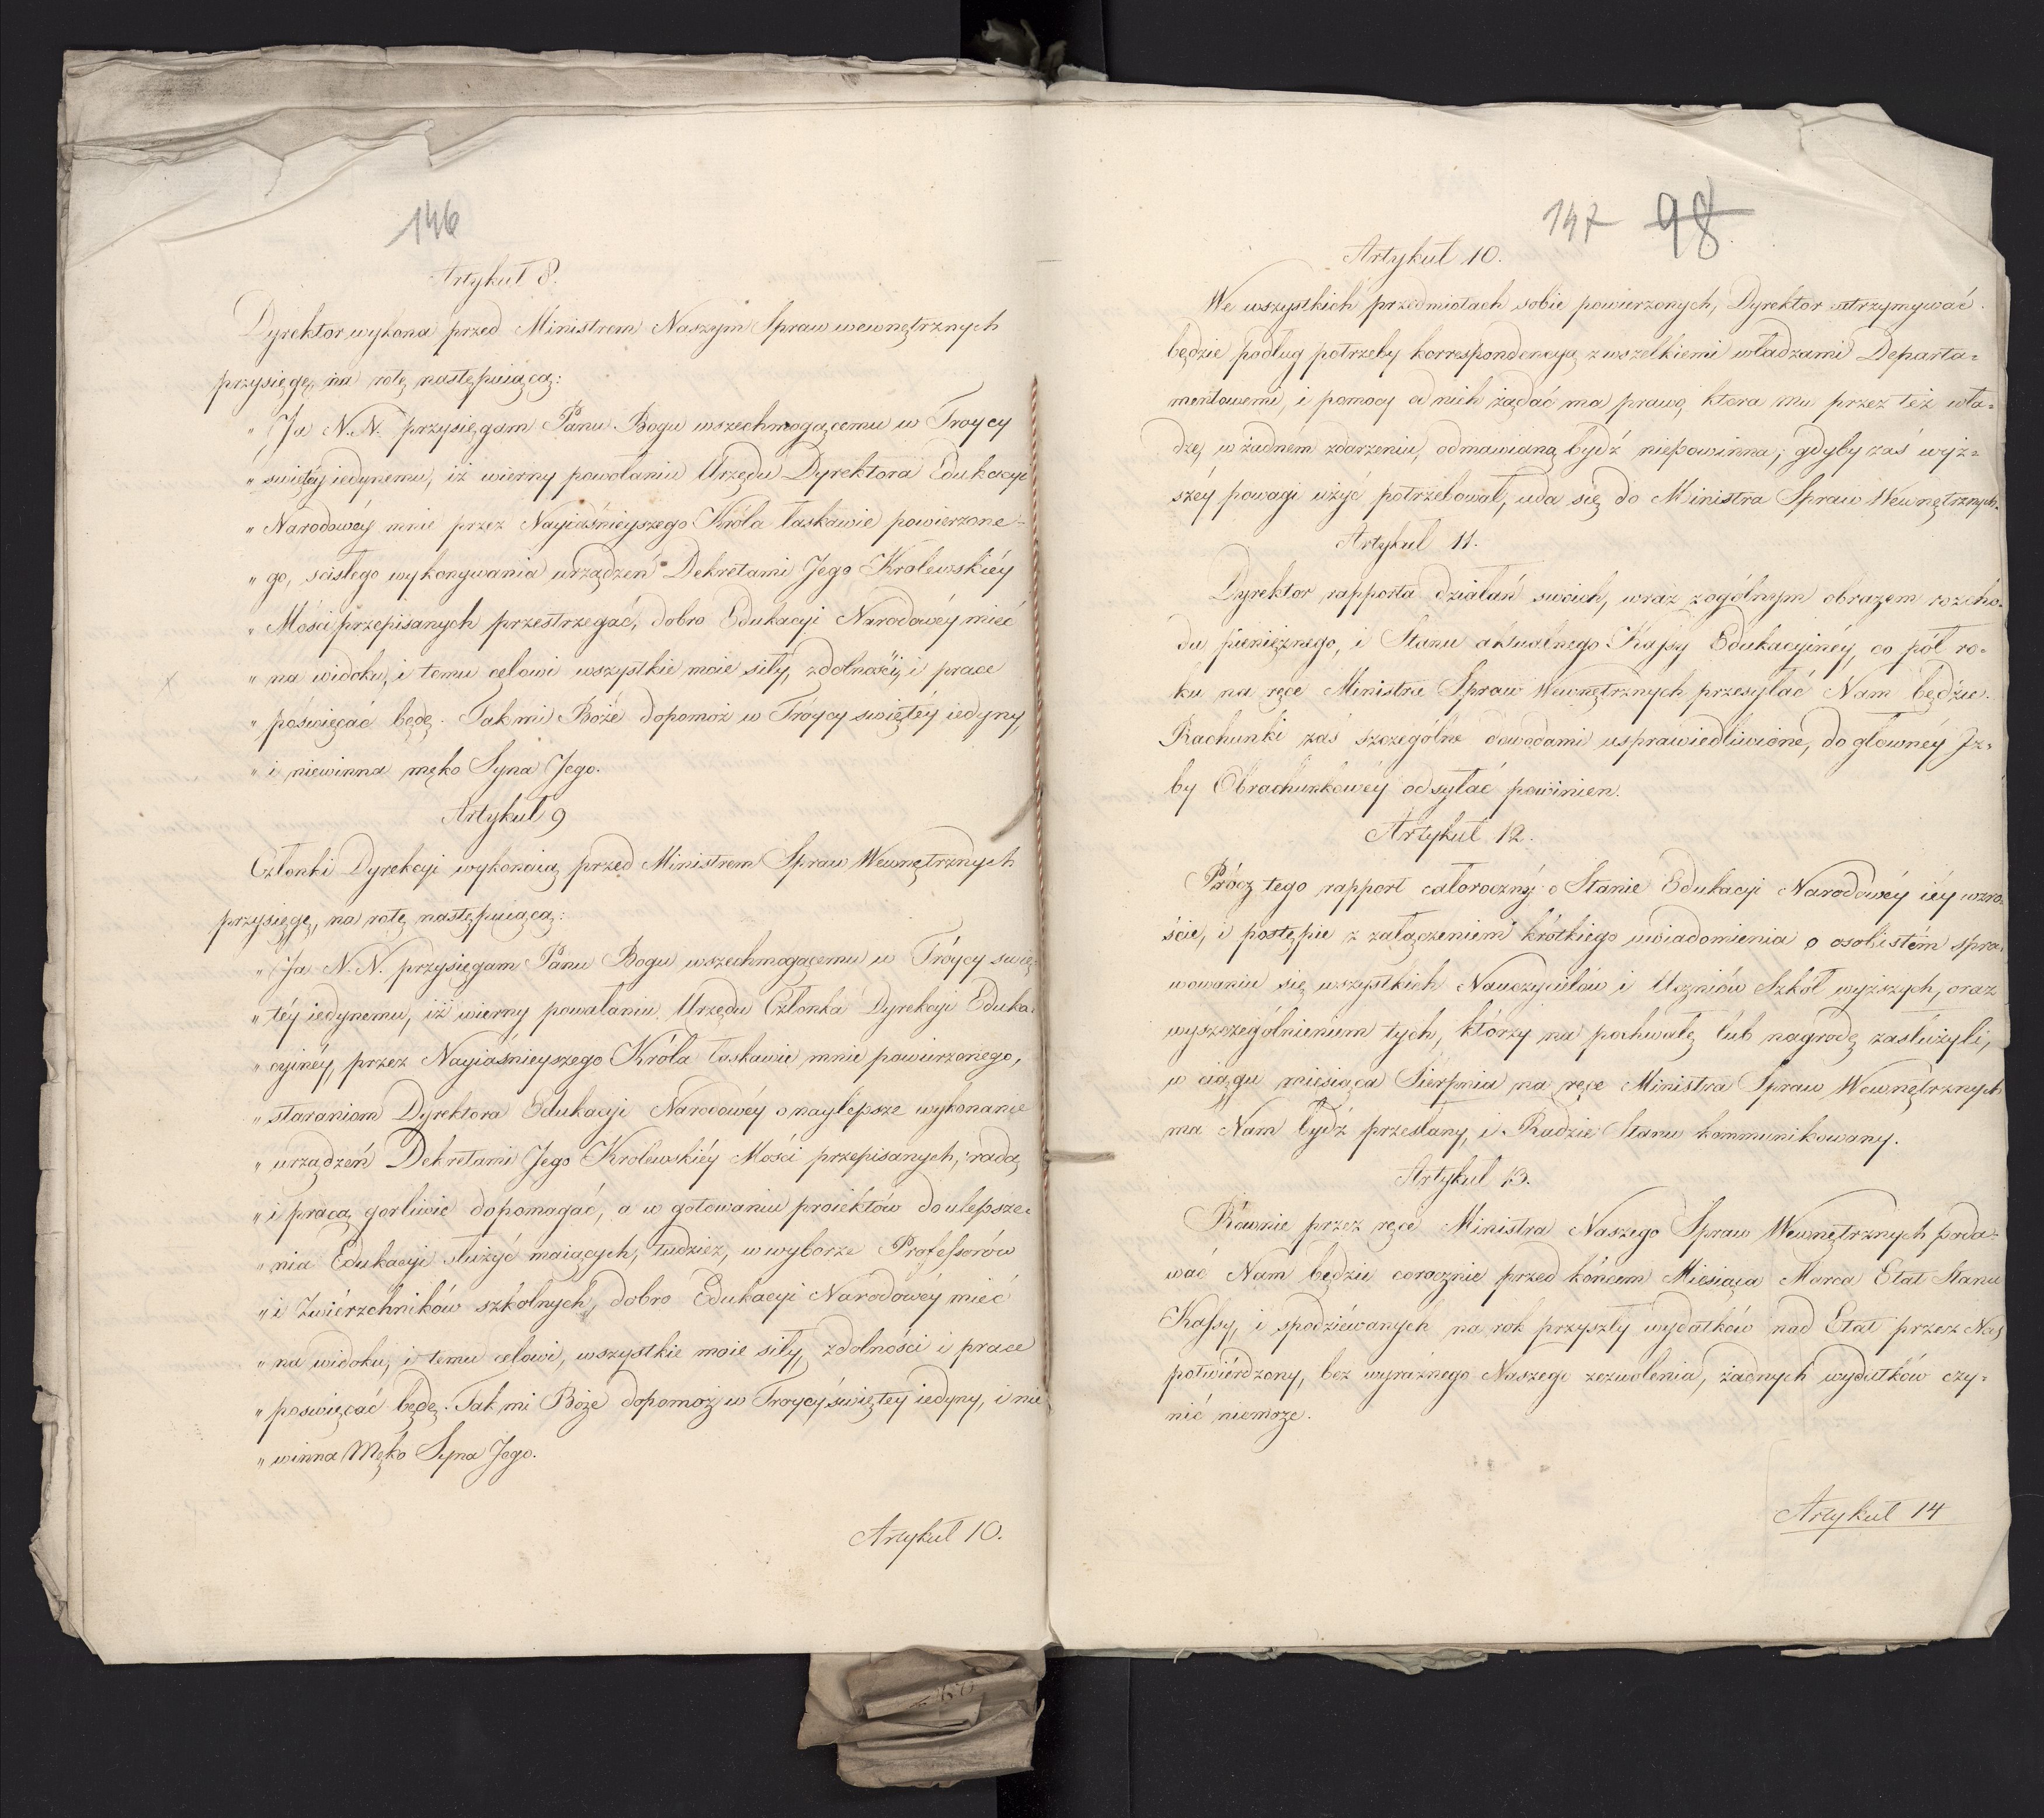 146
Artykuł 8.
Dyrektor wykona przed Ministrem Naszym Spraw wewnętrznych
przysięgę, na rotę następuiącą:
„ Ja N. N. przysięgam Panu Bogu wszechmogącemu w Troycy
„ swiętéy iedynemu, iż wierny powołaniu Urzędu Dyrektora Edukacyi
„ Narodowéy mnie przez Nayiaśnieyszego Króla łaskawie powierzone-
„ go, scisłego wykonywania urządzeń Dekretami Jego Krolewskiéy
„ Mości przepisanych przestrzegać, dobro Edukacyi Narodowéy mieć
„ na widoku, i temu celowi wszystkie moie siły, zdolności, i prace
„ poświęcać będę. Tak mi Boże dopomoż w Tróycy swiętéy iedyny,
„ i niewinna męko Syna Jego.
Artykuł 9
Członki Dyrekcyi wykonaią przed Ministrem Spraw Wewnętrznych
przysięgę, na rotę następuiącą:
„ Ja N. N. przysięgam Panu Bogu wszechmogącemu w Tróycy swię-
„ téy iedynemu, iż wierny powołaniu Urzędu Członka Dyrekcyi Eduka-
„ cyinéy, przez Nayiaśnieyszego Króla łaskawie mnie powierzonego,
„ staraniom Dyrektora Edukacyi Narodowéy o naylepsze wykonanie
„ urządzeń Dekretami Jego Krolewskiéy Mości przepisanych, radą
„ i pracą gorliwie dopomagać, a w gotowaniu proiektów do ulepsze-
„ nia Edukacyi służyć maiących, tudzież, w wyborze Professorów
„ i Zwiérzchników szkolnych, dobro Edukacyi Narodowéy mieć
„ na widoku, i temu celowi, wszystkie moie siły, zdolności i prace
„ poswięcać będę. Tak mi Boże dopomoż w Troycy świętéy iedyny, i nie
„ winna Męko Syna Jego.
Artykuł 10.
147 98
Artykuł 10.
We wszystkich przedmiotach sobie powierzonych, Dyrektor utrzymywać
będzie podług potrzeby korrespondencyą z wszelkiemi władzami Departa-
mentowemi, i pomocy od nich żądać ma prawo, ktora mu przez też wła-
dze, w żadném zdarzeniu, odmawianą bydź niepowinna; gdyby zaś wyż-
széy powagi użyć potrzebował, uda się do Ministra Spraw Wewnętrznych.
Artykuł 11.
Dyrektor rapporta działań swoich, wraz z ogólnym obrazem rozcho-
du pieniężnego, i Stanu aktualnego Kassy Edukacyinéy, co pół ro-
ku na ręce Ministra Spraw Wewnętrznych przesyłać Nam będzie.
Rachunki zaś szczególne dowodami usprawiedliwione, do głownéy Iz-
by Obrachunkowéy odsyłać powinien.
Artykuł 12.
Prócz tego rapport całoroczny o Stanie Edukacyi Narodowéy iéy wzro-
ście, i postępie z załączeniem krótkiego uwiadomienia o osobistém spra-
wowaniu się wszystkich Nauczycielów i Uczniów Szkół wyższych, oraz
wyszczególnieniem tych, którzy na pochwałę lub nagrodę zasłużyli,
w ciągu miesiąca Sierpnia na ręce Ministra Spraw Wewnętrznych
ma Nam bydź przesłany, i Radzie Stanu kommunikowany.
Artykuł 13.
Równie przez ręce Ministra Naszego Spraw Wewnętrznych poda-
wać Nam będzie corocznie przed końcem Miesiąca Marca Etat Stanu
Kassy, i spodziéwanych na rok przyszły wydatków nad Etat przez Nas
potwiérdzony, bez wyraźnego Naszego zezwolenia, żadnych wydatków czy-
nić niemoże.
Artykuł 14